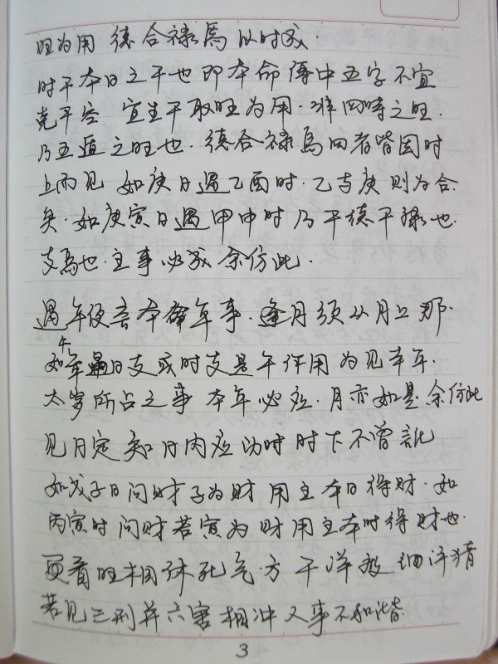 旺为用 德合禄马以时成.
时干本日之干也 即本命 傳中五字不宜
克干 宜生干取旺为用. 准四時之旺.
乃五道之旺也. 德合禄馬四者皆因时
上而见 如庚日遇乙酉时. 乙与庚则为合
矣. 如庚寅日遇甲申时 乃干德干禄也.
支馬也. 主事必成 余仿此.
遇年便言本年事. 逢月须从月上那.
如午年日支或时支是午作用为见本年.
太岁所占之事 本年必应. 月亦如是 余仿此
见日定知日内应 占时时下不曾訛
如戊子日问财 子为财用主本日得财. 如
丙寅时问财若寅为财用主本时得财也.
更看旺相休死气. 方干详救细详猜
若见三刑并六害 相冲又事不和谐
3